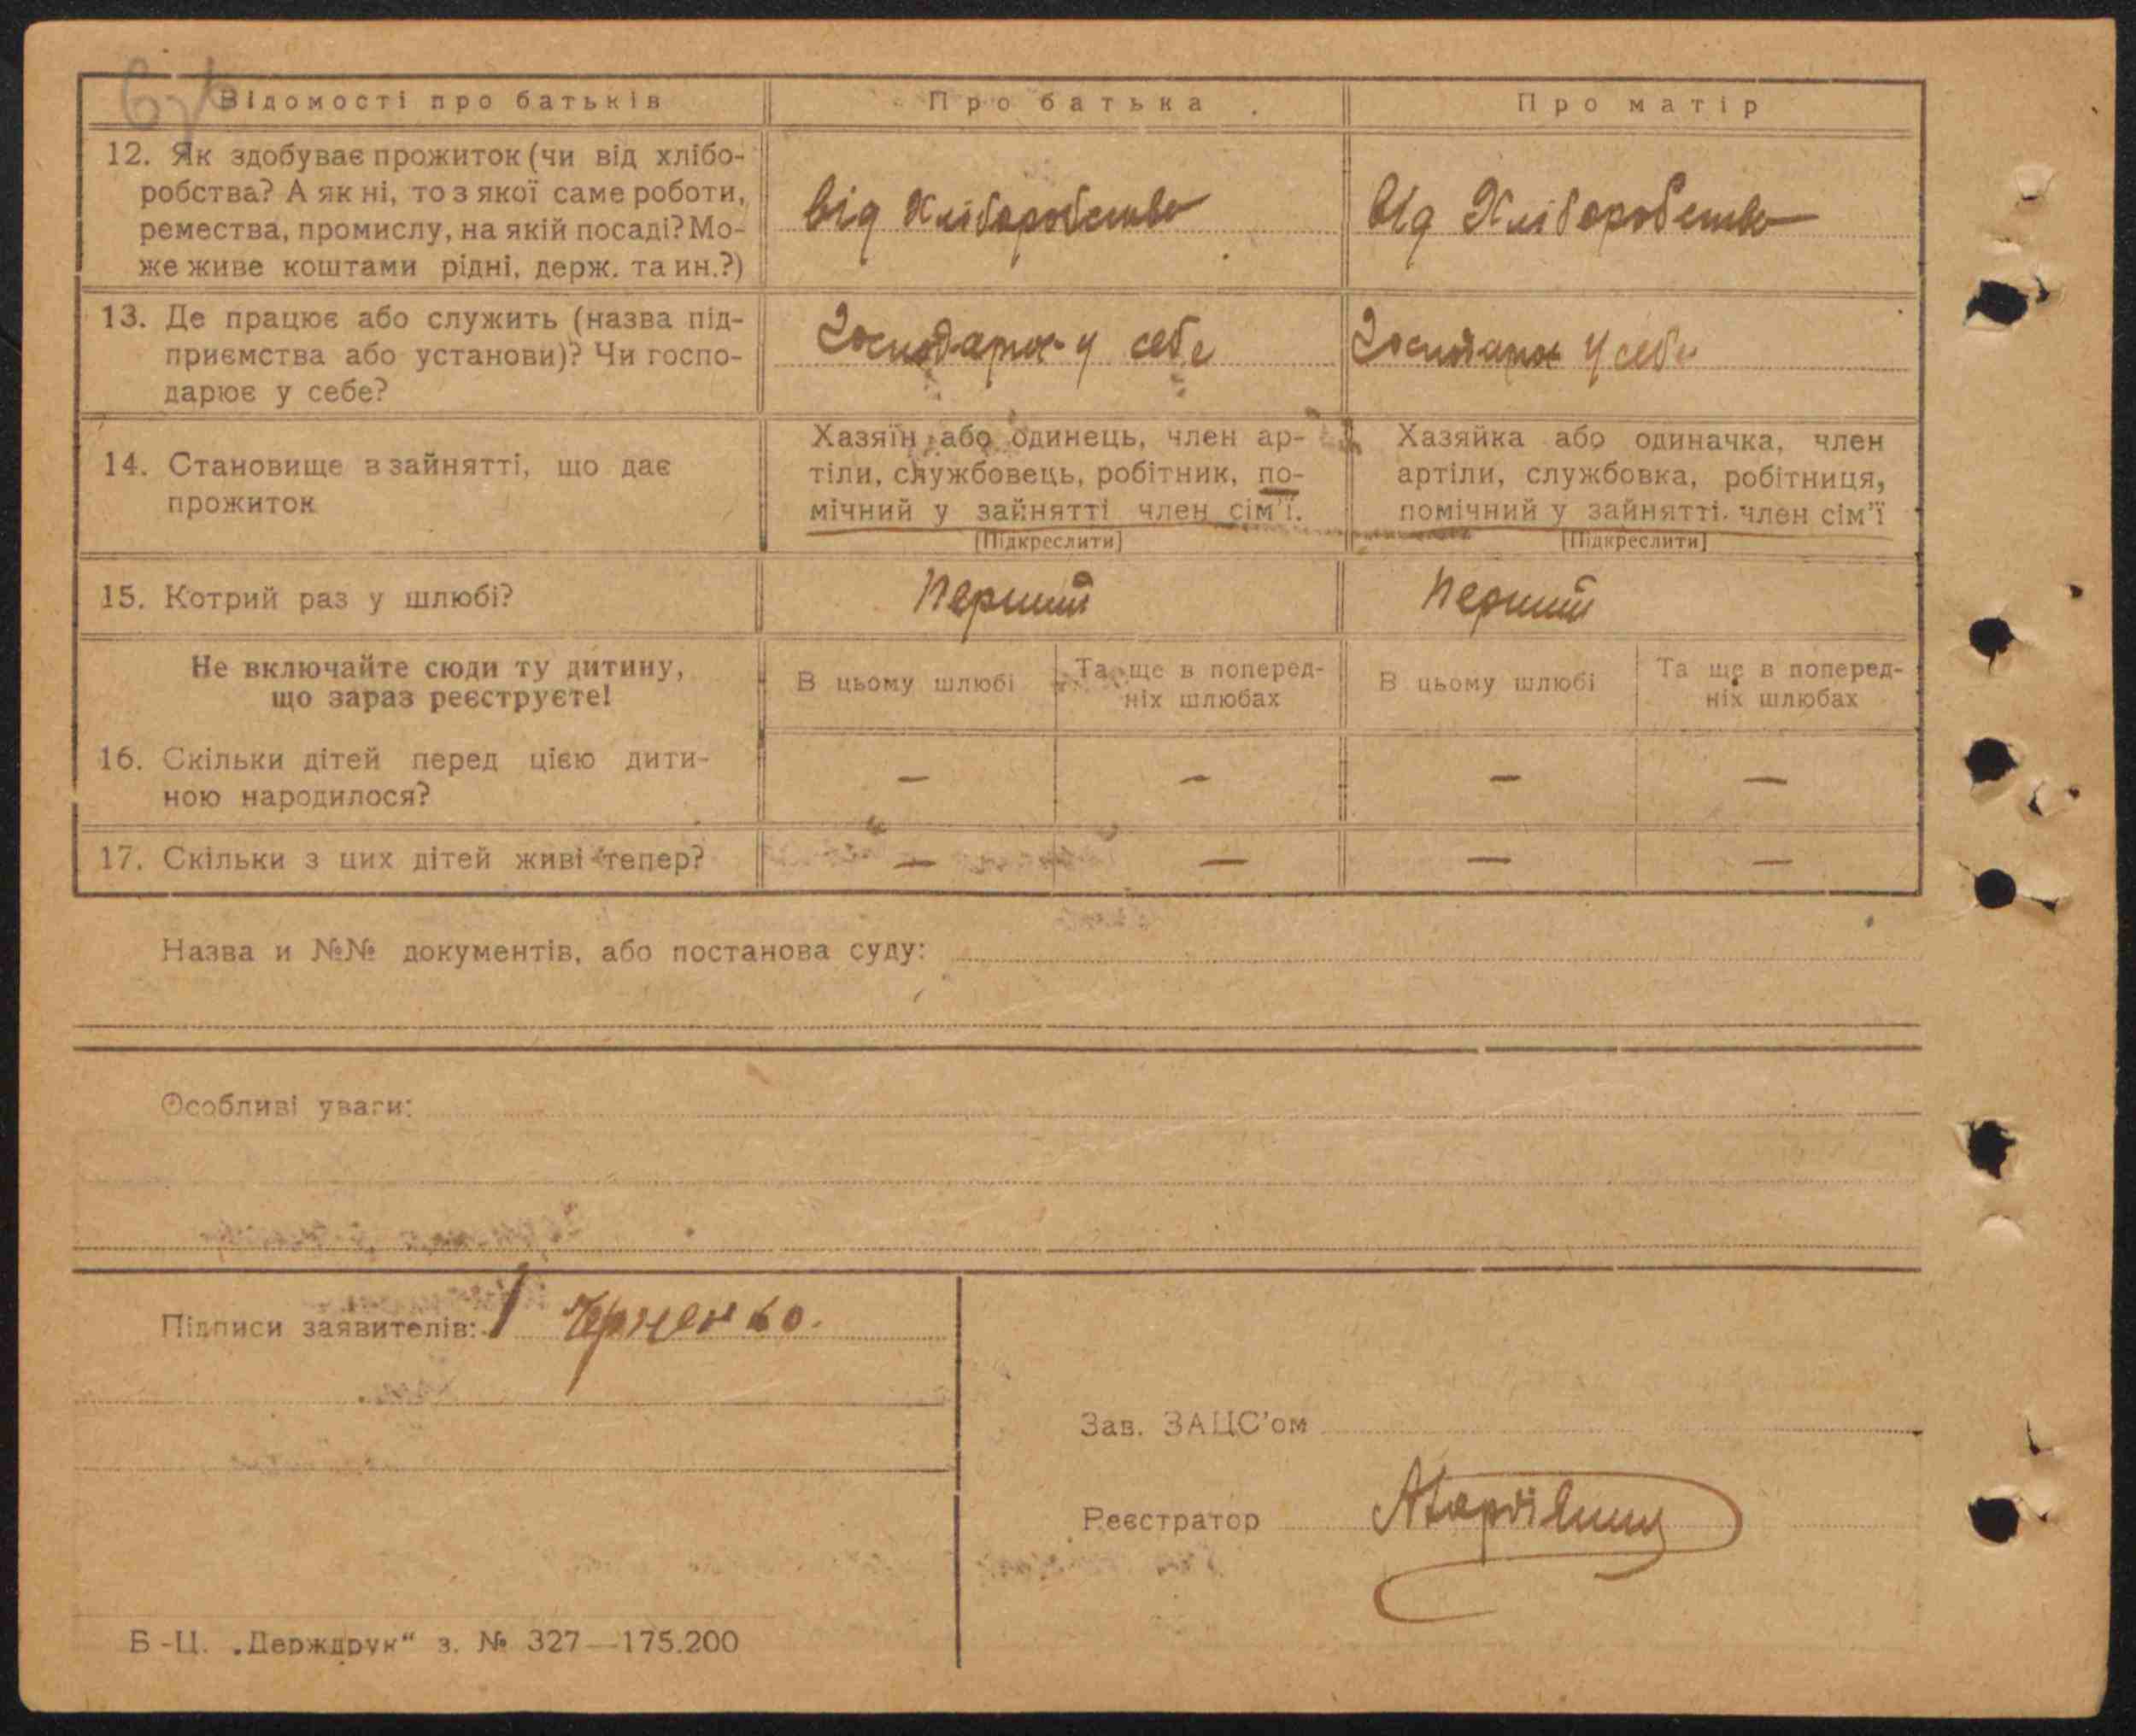 Відомості про батьків
Про батька
Про матір
12. Як здобуває прожиток (чи від хлібо-
робства? А як ні, то з якої саме роботи,
ремества, промислу, на якій посаді? Мо-
же живе коштами рідні, держ. та ин.?)
від Хліборобства
від Хліборобства
13. Де працює або служить (назва під-
приємства або установи)? Чи госпо-
дарює у себе?
Господарює у себе
Господарює у себе
14. Становище в зайнятті, що дає
прожиток
Хазяїн або одинець, член ар-
тіли, службовець, робітник, по-
мічний у зайнятті член сім'ї.
[Підкреслити]
Хазяйка або одиначка, член
артіли, службовка, робітниця,
помічний у зайнятті член сім'ї
[Підкреслити]
15. Котрий раз у шлюбі?
Перший
Перший
Не включайте сюди ту дитину,
що зараз реєструєте!
В цьому шлюбі
Та ще в поперед-
ніх шлюбах
В цьому шлюбі
Та ще в поперед-
ніх шлюбах
16. Скільки дітей перед цією дити-
ною народилося?
— — — —
17. Скільки з цих дітей живі тепер?
— — — —
Назва и №№ документів, або постанова суду:
Особливі уваги:
Підписи заявителів:
Зав. ЗАЦС'ом
Реєстратор
Б-Ц. „Держдрук“ з. № 327—175.200